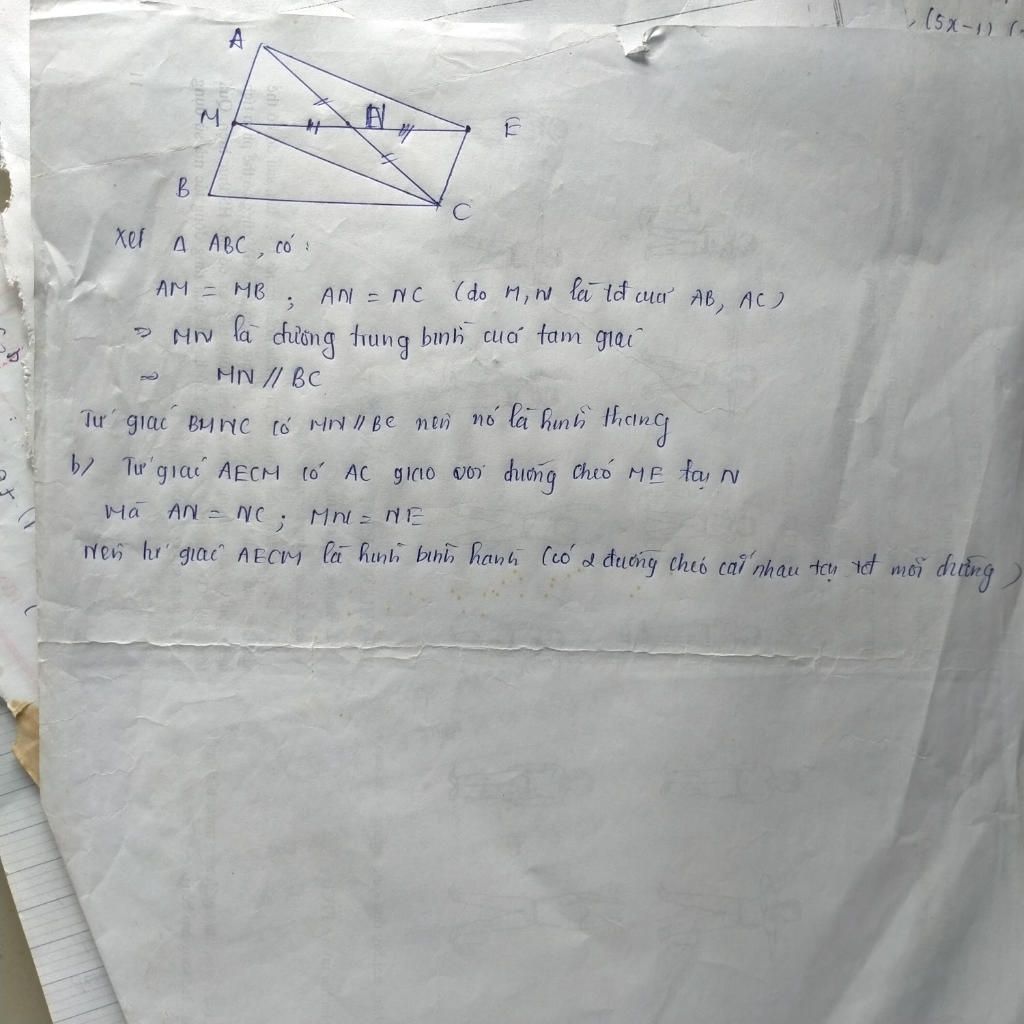 (5x-1) (
A
M
N
E
B
C
Xét Δ ABC, có:
AM = MB ; AN = NC (do M, N là tđ của AB, AC)
⇒ MN là đường trung bình của tam giác
⇒ MN // BC
Tứ giác BMNC có MN // BC nên nó là hình thang
b/ Tứ giác AECM có AC giao với đường chéo ME tại N
Mà AN = NC ; MN = NE
Nên tứ giác AECM là hình bình hành (có 2 đường chéo cắt nhau tại tđ mỗi đường)